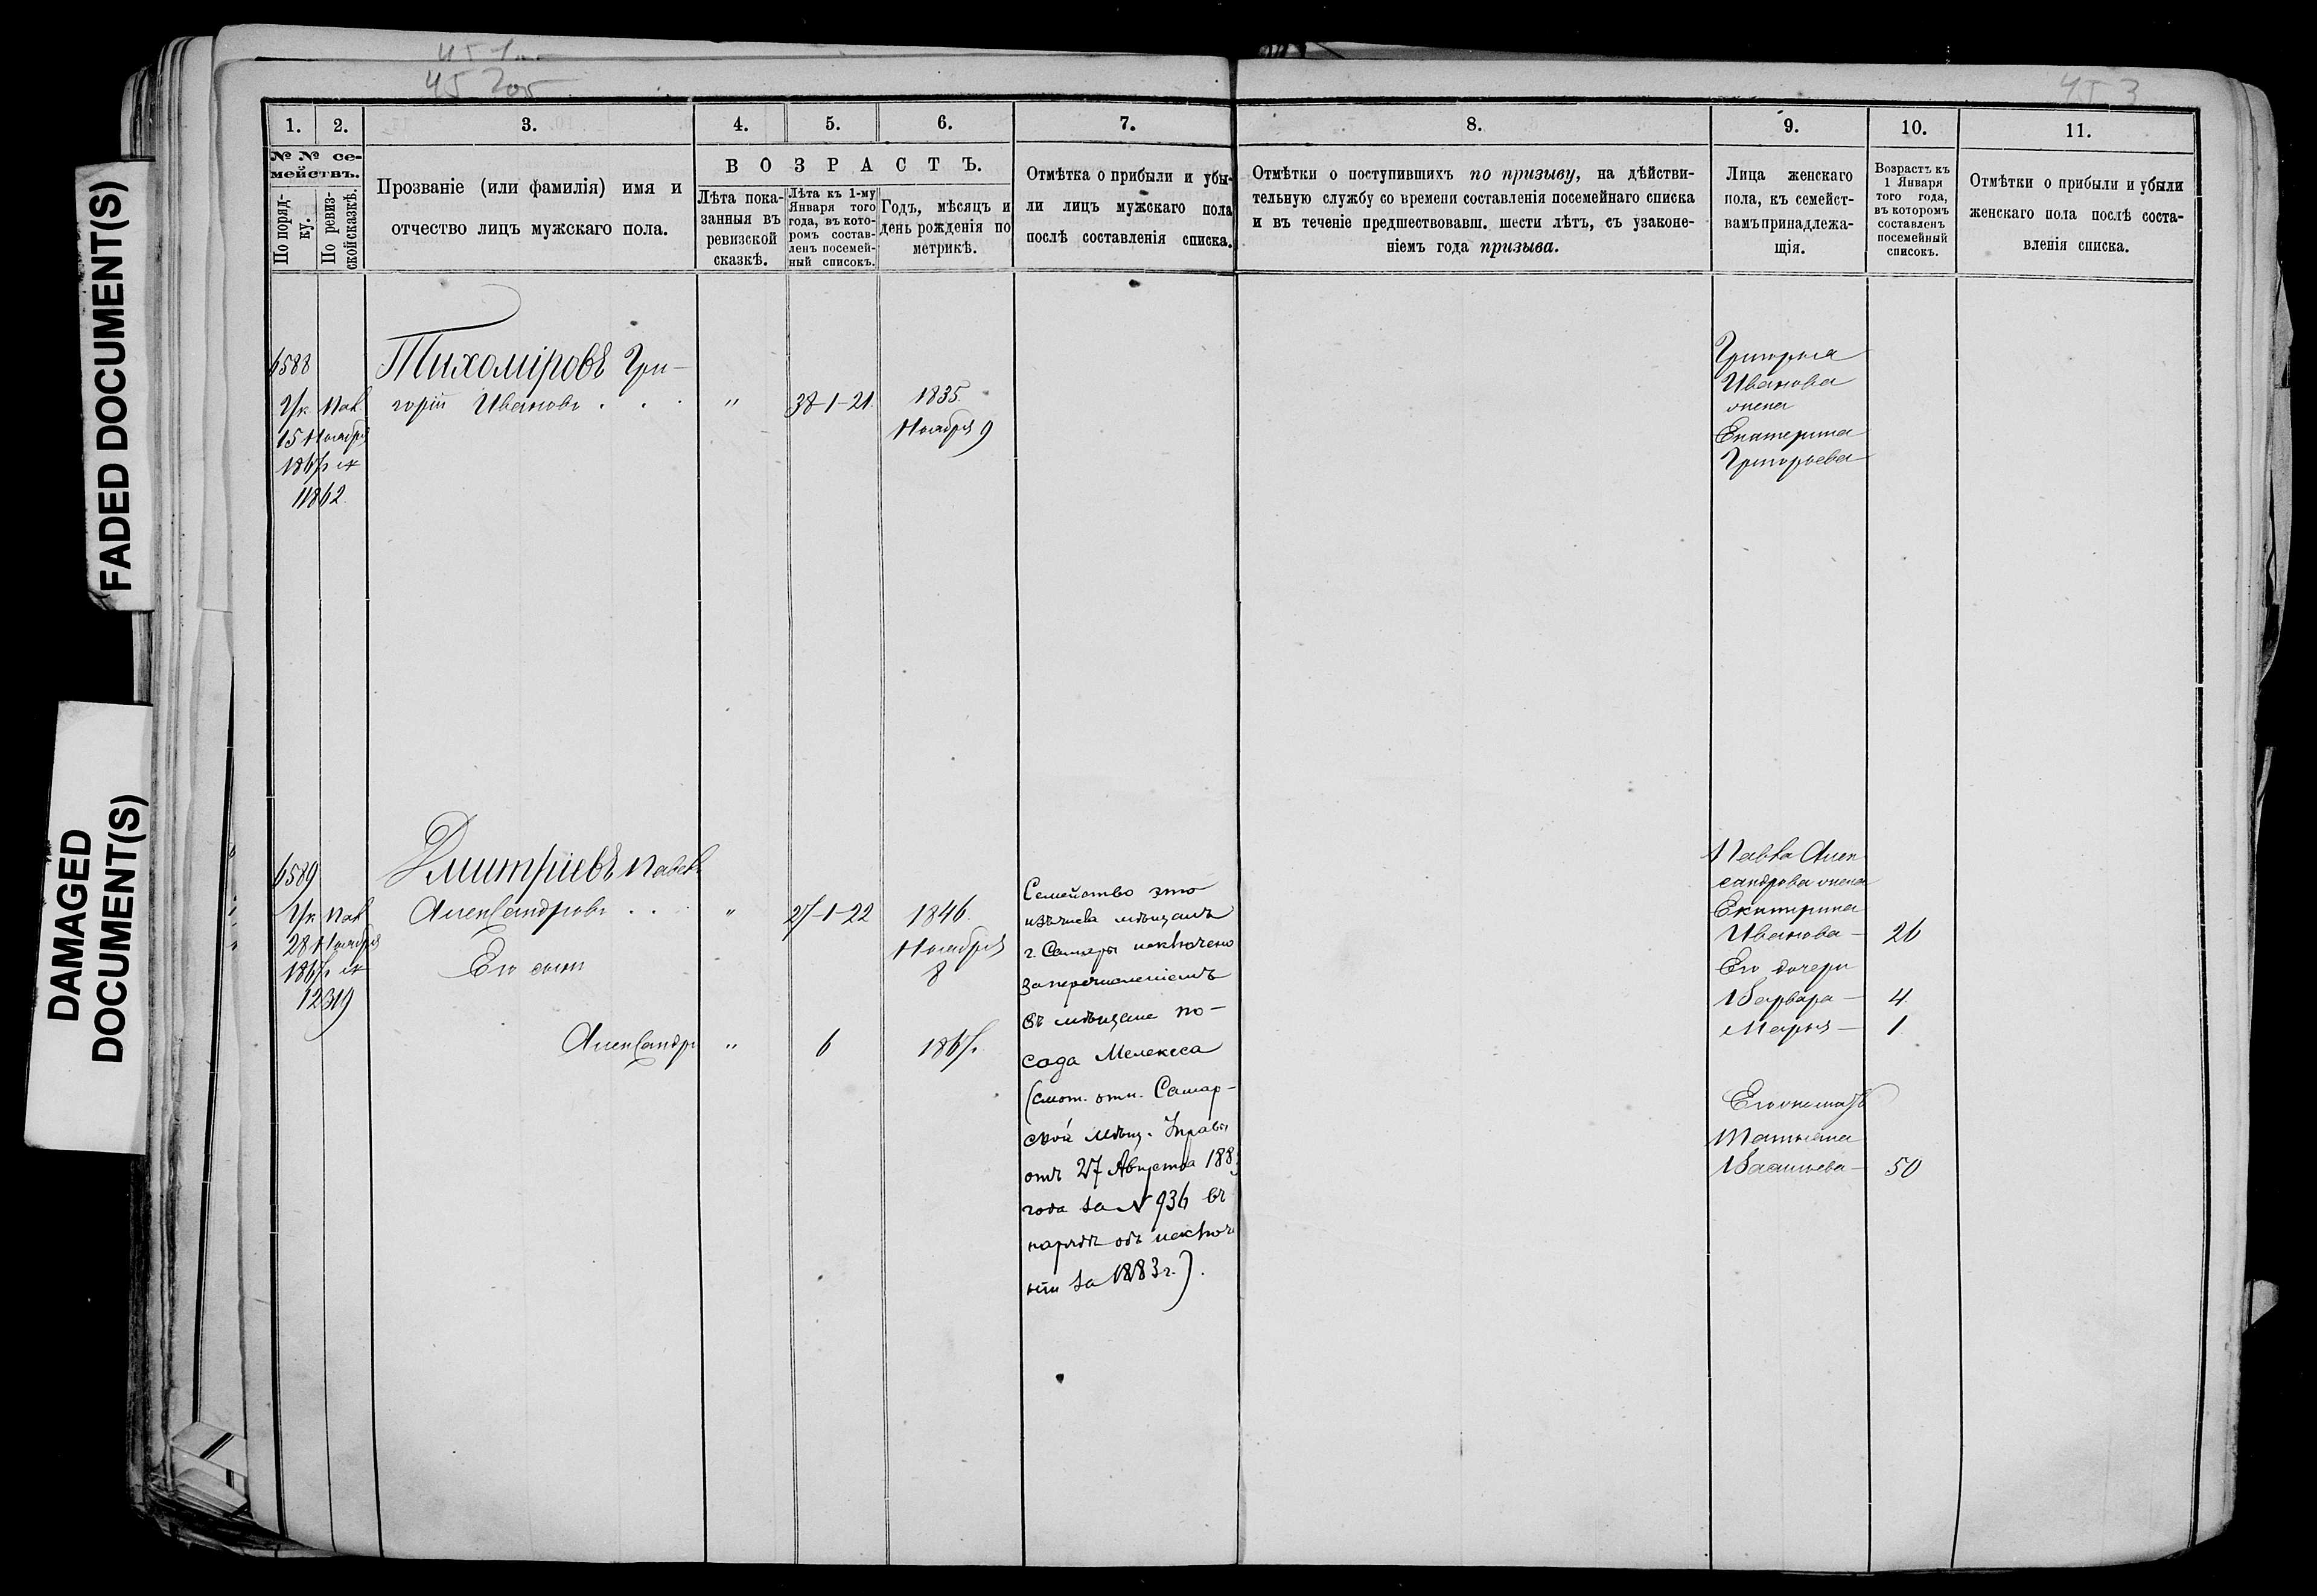 FADED DOCUMENT(S)
DAMAGED
DOCUMENT(S)
45 2об
453
1.
2.
3.
4.
5.
6.
7.
8.
9.
10.
11.
№ № се-
мействъ.
По поряд-
ку.
По ревиз-
ской сказкѣ.
Прозваніе (или фамилія) имя и
отчество лицъ мужскаго пола.
ВОЗРАСТЪ.
Лѣта пока-
занныя въ
ревизской
сказкѣ.
Лѣта къ 1-му
Января того
года, въ кото-
ромъ состав-
ленъ посемей-
ный списокъ.
Годъ, мѣсяцъ и
день рожденія по
метрикѣ.
Отмѣтка о прибыли и убы-
ли лицъ мужскаго пола
послѣ составленія списка.
Отмѣтки о поступившихъ по призыву, на дѣйстви-
тельную службу со времени составленія посемейнаго списка
и въ теченіе предшествовавш. шести лѣтъ, съ узаконе-
ніемъ года призыва.
Лица женскаго
пола, къ семейст-
вамъ принадлежа-
щія.
Возрастъ къ
1 Января
того года,
въ которомъ
составленъ
посемейный
списокъ.
Отмѣтки о прибыли и убыли
женскаго пола послѣ соста-
вленія списка.
6588
Ук. Пал.
15 Ноября
11862.
Тихоміровъ Гри-
горій Ивановъ . . .
"
38-1-21.
1835.
Ноября 9
Григорья
Иванова
жена
Екатерина
Григорьева
6589
Ук. Пал.
28 Ноября
12319
Дмитріевъ Павелъ
Александровъ . . .
"
27-1-22
1846.
Ноября
8
Его сынъ
Александръ
"
6
186
Семейство это
изъ числа мѣщанъ
г. Самары исключено
за перечисленіемъ
въ мѣщане по-
сада Мелекеса
(смот. отн. Самар-
ской Мѣщ. Управы
отъ 27 Августа 1883
года за № 936 въ
нарядѣ объ исключе
ніи за 1883 г.).
Павла Алек
сандрова жена
Екатерина
Иванова - 26
Его дочери
Варвара - 4.
Марья - 1.
Его же мать
Татьяна
Васильева - 50